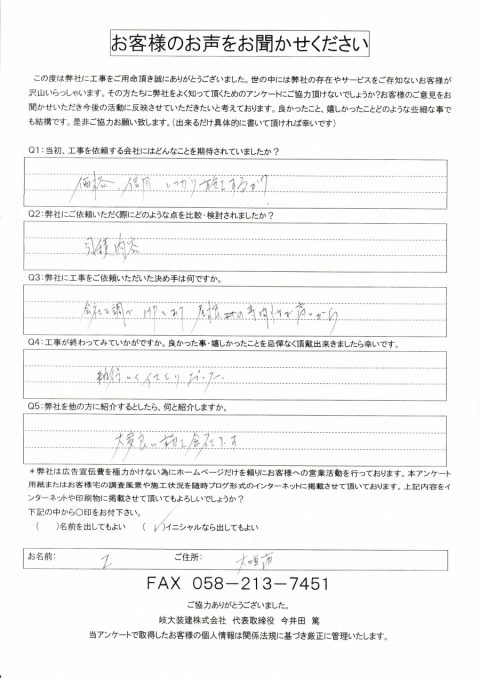 お客様のお声をお聞かせください
この度は弊社に工事をご用命頂き誠にありがとうございました。世の中には弊社の存在やサービスをご存知ないお客様が
沢山いらっしゃいます。その方たちに弊社をよく知って頂くためのアンケートにご協力頂けないでしょうか?お客様のご意見をお
聞かせいただき今後の活動に反映させていただきたいと考えております。良かったこと、嬉しかったことどのような些細な事で
も結構です。是非ご協力お願い致します。(出来るだけ具体的に書いて頂ければ幸いです)
Q1:当初、工事を依頼する会社にはどんなことを期待されていましたか?
価格、信用 しっかり施工するか?
Q2:弊社にご依頼いただく際にどのような点を比較・検討されましたか?
見積内容
Q3:弊社に工事をご依頼いただいた決め手は何ですか。
会社を調べ
Q4:工事が終わってみていかがですか。良かった事・嬉しかったことを忌憚なく頂戴出来きましたら幸いです。
Q5:弊社を他の方に紹介するとしたら、何と紹介しますか。
大変良い施工会社です
*弊社は広告宣伝費を極力かけない為にホームページだけを頼りにお客様への営業活動を行っております。本アンケート
用紙またはお客様宅の調査風景や施工状況を随時ブログ形式のインターネットに掲載させて頂いております。上記内容をイ
ンターネットや印刷物に掲載させて頂いてもよろしいでしょうか?
下記の中から○印をお付下さい。
( )名前を出してもよい (✓)イニシャルなら出してもよい
お名前: I ご住所: 大垣市
FAX 058-213-7451
ご協力ありがとうございました。
岐大装建株式会社 代表取締役 今井田 篤
当アンケートで取得したお客様の個人情報は関係法規に基づき厳正に管理いたします。